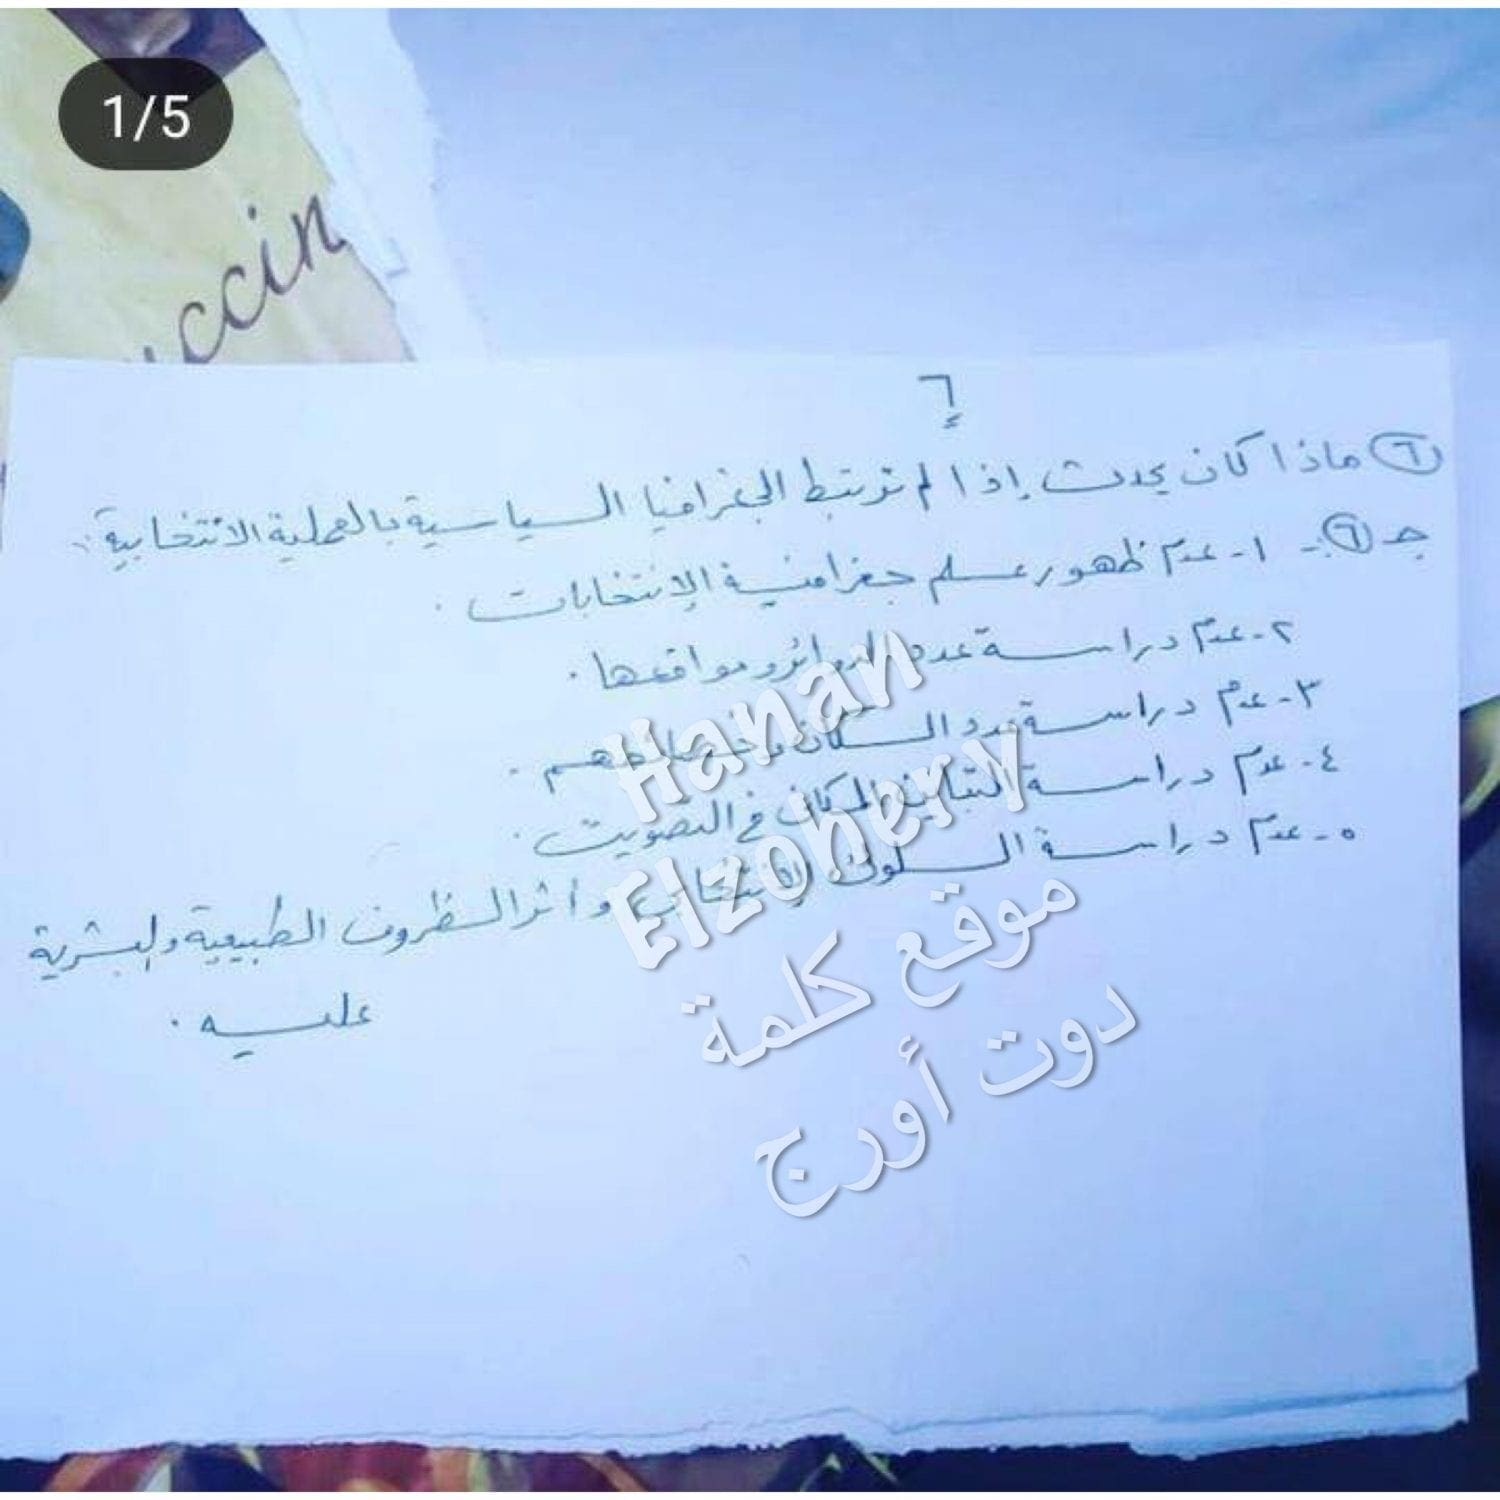 1/5
uccin
٦
٦ ماذا كان يحدث إذا لم ترتبط الجغرافيا السياسية بالعملية الانتخابية:
جـ٦:- ١- عدم ظهور علم جغرافية الإنتخابات .
٢- عدم دراسة عدد الدوائر ومواقعها .
٣- عدم دراسة عدد السكان وخصائصهم .
٤- عدم دراسة التباين المكانى فى التصويت .
٥- عدم دراسة السلوك الإنتخابى وأثر الظروف الطبيعية والبشرية
عليه .
Hanan
Elzohery
موقع كلمة
دوت أورج